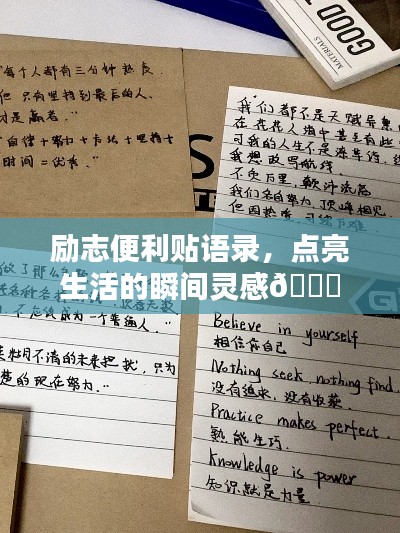 GOOD
MATERIALS
"每个人都有三分钟热度
但 只有坚持到最后的人,
才是赢家。"
"自律+努力+
+坚持+
时间=优秀。"
我们都不是天赋异禀
在茫茫人海中甚至有些
可我的人生不是
我想改写航线
不负万里,
我们各自努力,顶峰相见
S
励志便利贴语录,点亮
生活的瞬间灵感ð
做了那么多
成为一个普通人"
不清的未来担扰,只为
楚的现在努力。"
Believe in yourself
相信你自己
Nothing seek, nothing find.
没有追求,没有收获.
Practice makes perfect.
熟能生巧.
Knowledge is power
知识就是力量